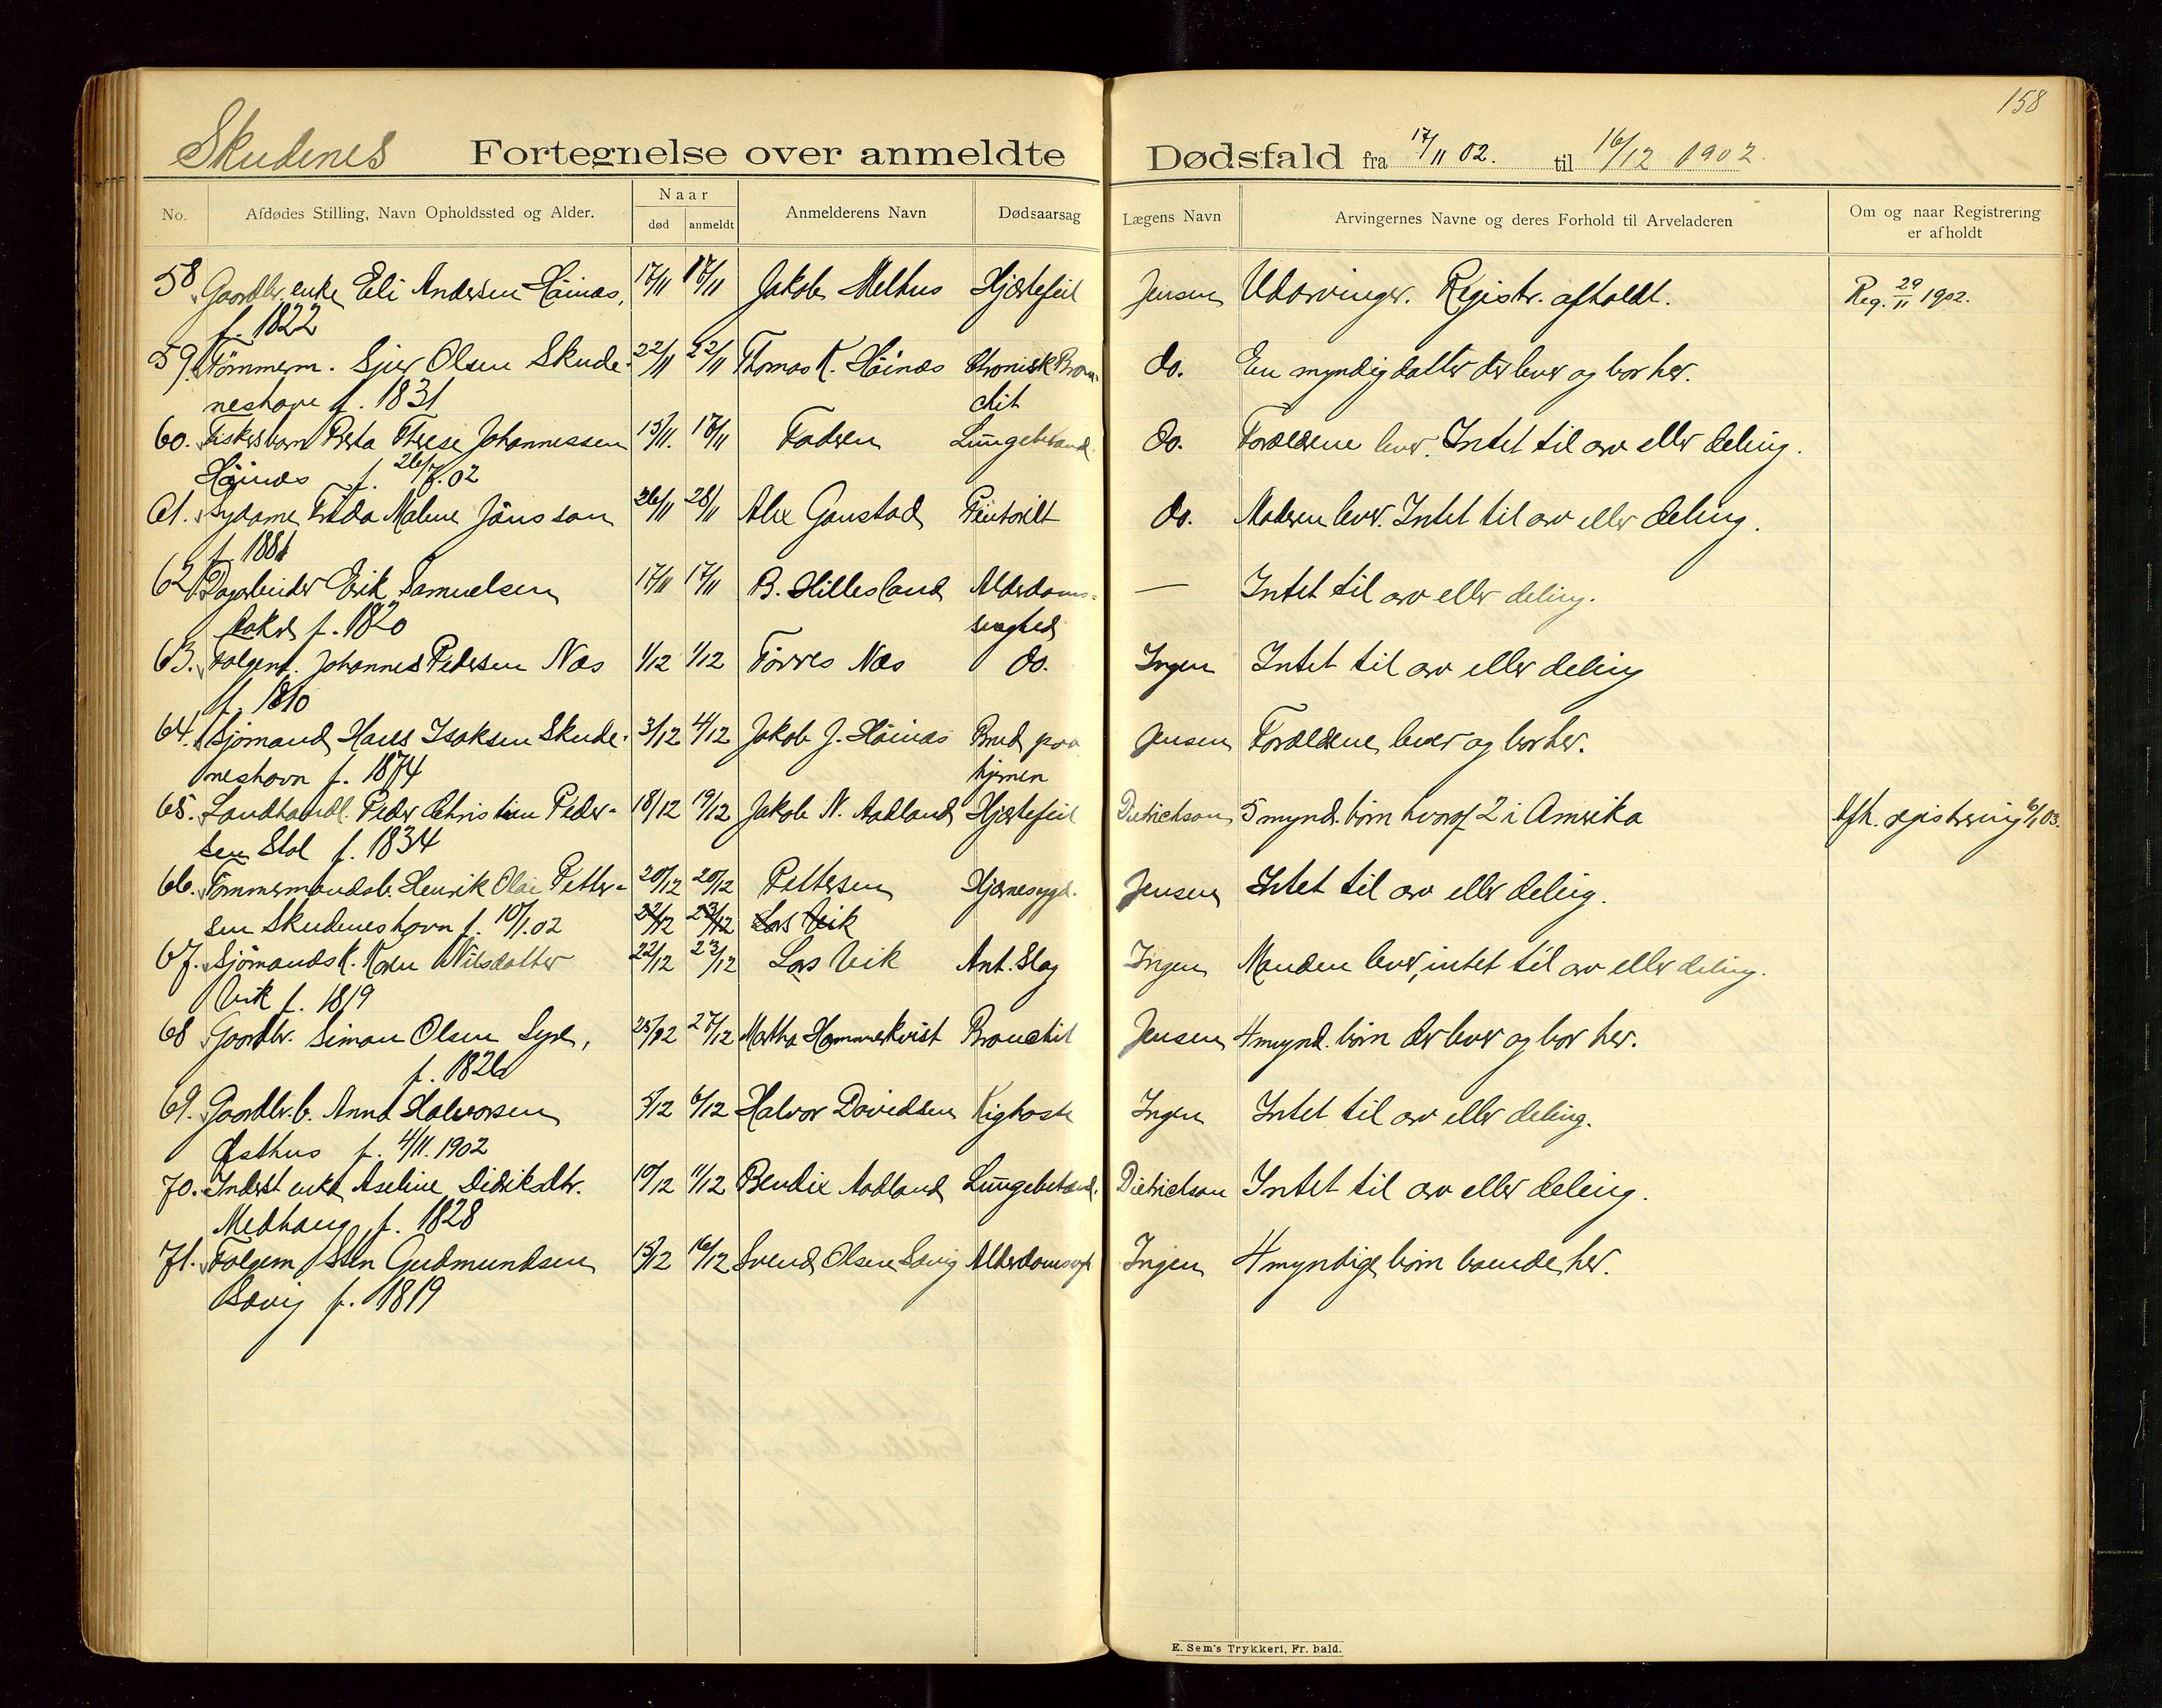 158
Skudenes Fortegnelse over anmeldte Dødsfald fra 17/11 02. til 16/12 1902.
No. Afdødes Stilling, Navn Opholdssted og Alder. Naar død anmeldt Anmelderens Navn Dødsaarsag Lægens Navn Arvingernes Navne og deres Forhold til Arveladeren Om og naar Registrering er afholdt
58. Gaardbr. enke Eli Andersen Höinæs, 17/11 17/11 Jakob Melhus Hjertefeil Jensen Udarvinger. Registr. afholdt. Reg. 29/11 1902.
f. 1822
59. Tömmerm. Sjur Olsen Skude- 22/11 22/11 Thomas K. Höinæs Chronisk Bron- do. En myndig datter der lever og bor her.
neshavn f. 1831 chit
60. Fiskersbarn Berta Therese Johannessen 13/11. 17/11 Faderen Lungebetænd. do. Forældrene lever. Intet til arv eller deling.
Höinæs f. 26/7.02
61. Sydame Frida Malene Jönsson 26/11 28/11 Alex Gaustad do. Moderen lever. Intet til arv eller deling.
f. 1881
62. Dagarbeider Erik Samuelsen 17/11 17/11 B. Hillesland Alderdoms- — Intet til arv eller deling.
f. 1820 svaghed
63. Folgem. Johannes Pedersen Næs 1/12 1/12 Törres Næs do. Ingen Intet til arv eller deling
f. 1810
64. Sjömand Hans Isaksen Skude- 3/12 4/12 Jakob J. Höinæs Brud paa Jensen Forældrene lever og bor her.
neshavn f. 1874 hjernen
65. Landhandl. Peder Christian Peder- 18/12 19/12 Jakob N. Aadland Hjertefeil Dietrichson 5 mynd. börn hvoraf 2 i Amerika Afh. registrering 6/1 03.
sen Stol f. 1834
66. Tömmermandsb. Henrik Olai Petter- 20/12 20/12 Pettersen Hjernesygd. Jensen Intet til arv eller deling.
sen Skudeneshavn f. 10/1.02 22/12 23/12 Lars Vik
67. Sjömands K. Karen Nilsdatter 22/12 23/12 Lars Vik Ant. Slag Ingen Manden lever, intet til arv eller deling.
Vik f. 1819
68 Gaardbr. Simon Olsen Syre, 25/12 27/12 Martha Hammerkvist Bronchit Jensen 4 mynd. börn der lever og bor her.
f. 1826
69. Gaardbr. b. Anna Halvorsen 5/12 6/12 Halvor Davidsen Kighoste Ingen Intet til arv eller deling.
Østhus f. 4/11. 1902
70. Inderst enke Aseline Didriksdtr. 10/12 11/12 Bendix Aadland Lungebetænd. Dietrichson Intet til arv eller deling.
Medhaug f. 1828
71. Folgem Sten Gudmundsen 15/12 16/12 Svend Olsen Sævig Alderdomssvgh Ingen 4 myndige börn boende her.
Sævig f. 1819
E. Sem's Trykkeri, Fr. hald.